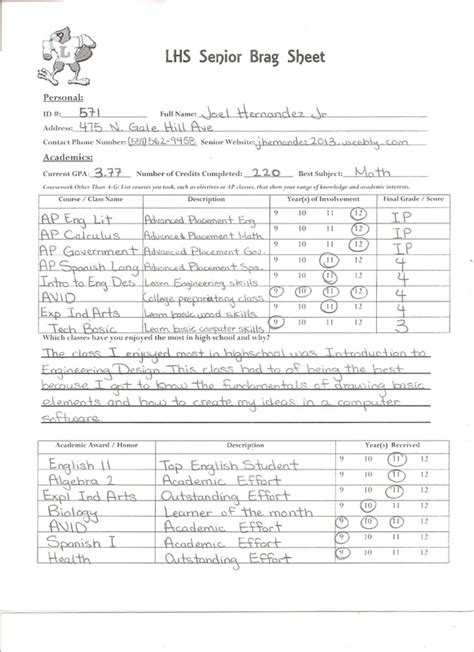 L
LHS Senior Brag Sheet
Personal:
ID #: 571 Full Name: Joel Hernandez Jr
Address: 475 N. Gale Hill Ave
Contact Phone Number: (559)562-9458 Senior Website: jhernandez2013.weebly.com
Academics:
Current GPA: 3.77 Number of Credits Completed: 220 Best Subject: Math
Coursework Other Than A-G: List courses you took, such as electives or AP classes, that show your range of knowledge and academic interests.
Course / Class Name Description Year(s) of Involvement Final Grade / Score
AP Eng Lit Advanced Placement Eng 9 10 11 12 IP
AP Calculus Advanced Placement Math 9 10 11 12 IP
AP Government Advanced Placement Gov. 9 10 11 12 IP
AP Spanish Lang Advanced Placement Spa. 9 10 11 12 4
Intro to Eng Des Learn Engineering skills 9 10 11 12 4
AVID College preparatory class 9 10 11 12 4
Exp Ind Arts Learn basic wood skills 9 10 11 12 4
Tech Basic Learn basic computer skills 9 10 11 12 3
Which classes have you enjoyed the most in high school and why?
The class I enjoyed most in highschool was Introduction to
Engineering Design. This class had to of being the best
because I got to know the fundamentals of drawing basic
elements and how to create my ideas in a computer
software.
Academic Award / Honor Description Year(s) Received
English 11 Top English Student 9 10 11 12
Algebra 2 Academic Effort 9 10 11 12
Expl Ind Arts Outstanding Effort 9 10 11 12
Biology Learner of the month 9 10 11 12
AVID Academic Effort 9 10 11 12
Spanish I Academic Effort 9 10 11 12
Health Outstanding Effort 9 10 11 12